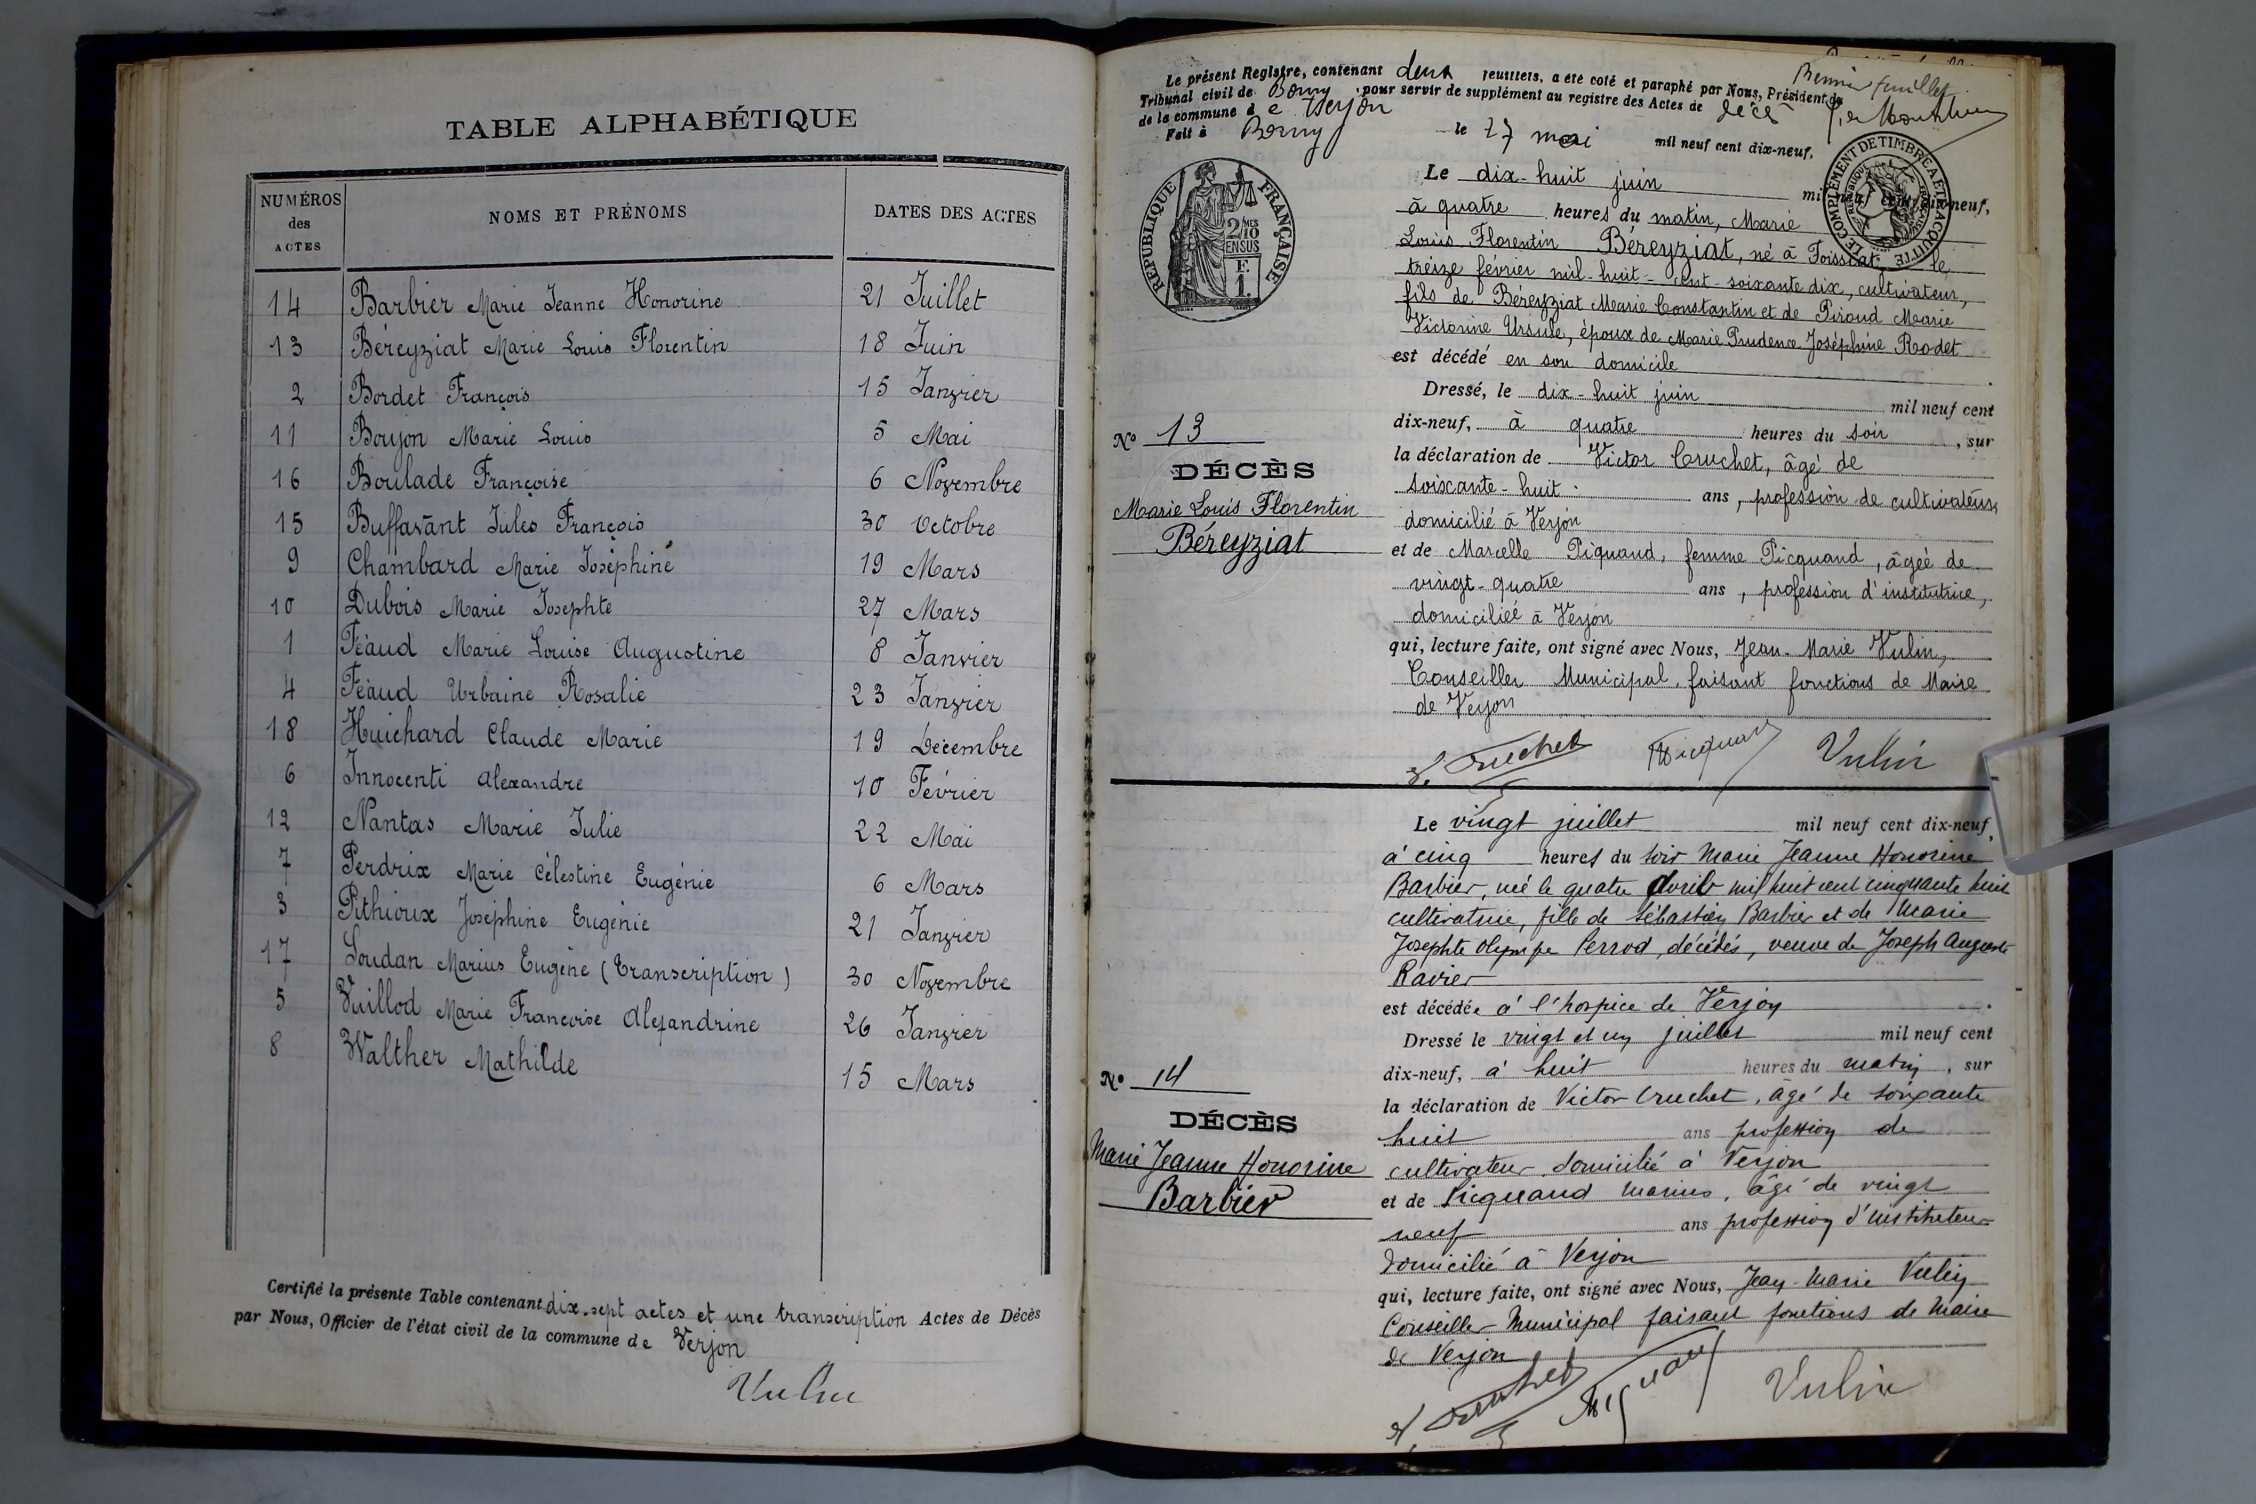 TABLE ALPHABÉTIQUE
NUMÉROS des ACTES NOMS ET PRÉNOMS DATES DES ACTES
14 Barbier Marie Jeanne Honorine 21 Juillet
13 Béreyziat Marie Louis Florentin 18 Juin
2 Bordet François 15 Janvier
11 Boujon Marie Louis 5 Mai
16 Boulade Françoise 6 Novembre
15 Buffavant Jules François 30 Octobre
9 Chambard Marie Joséphine 19 Mars
10 Dubois Marie Josephte 27 Mars
1 Féaud Marie Louise Augustine 8 Janvier
4 Féaud Urbaine Rosalie 23 Janvier
18 Huichard Claude Marie 19 Décembre
6 Innocenti Alexandre 10 Février
12 Nantas Marie Julie 22 Mai
7 Perdrix Marie Célestine Eugénie 6 Mars
3 Pithioux Joséphine Eugénie 21 Janvier
17 Soudan Marius Eugène (Transcription) 30 Novembre
5 Vuillod Marie Françoise Alexandrine 26 Janvier
8 Walther Mathilde 15 Mars
Certifié la présente Table contenant dix-sept actes et une transcription Actes de Décès
par Nous, Officier de l'état civil de la commune de Verjon
Vulin
Premier feuillet
Le présent Registre, contenant deux feuillets, a été coté et paraphé par Nous, Président du
Tribunal civil de Bourg pour servir de supplément au registre des Actes de décès
de la commune de Verjon
Fait à Bourg le 27 mai mil neuf cent dix-neuf.
RÉPUBLIQUE FRANÇAISE
2/10 MES
EN SUS
F.
1.
LE COMPLÉMENT DE TIMBRE A ÉTÉ ACQUITTÉ
Le dix-huit juin mil neuf cent dix-neuf,
à quatre heures du matin, Marie
Louis Florentin Béreyziat, né à Foissiat le
treize février mil-huit-cent-soixante dix, cultivateur,
fils de Béreyziat Marie Constantin et de Piroud Marie
Victorine Ursule, époux de Marie Prudence Joséphine Rodet
est décédé en son domicile
Dressé, le dix-huit juin mil neuf cent
dix-neuf, à quatre heures du soir, sur
la déclaration de Victor Cruchet, âgé de
soixante-huit ans, profession de cultivateur
domicilié à Verjon
et de Marcelle Piquand, femme Picquand, âgée de
vingt-quatre ans, profession d'institutrice,
domiciliée à Verjon
qui, lecture faite, ont signé avec Nous, Jean-Marie Vulin,
Conseiller Municipal, faisant fonctions de Maire
de Verjon
N° 13
DÉCÈS
Marie Louis Florentin
Béreyziat
V. Cruchet Picquand Vulin
Le vingt juillet mil neuf cent dix-neuf,
à cinq heures du soir Marie Jeanne Honorine
Barbier, née le quatre Avril mil huit cent cinquante huit
cultivatrice, fille de Sébastien Barbier et de Marie
Josephte Olympe Perrod, décédés, veuve de Joseph Auguste
Ravier
est décédée à l'hospice de Verjon
Dressé le vingt et un juillet mil neuf cent
dix-neuf, à huit heures du matin, sur
la déclaration de Victor Cruchet, âgé de soixante
huit ans profession de
cultivateur domicilié à Verjon
et de Picquand Marius, âgé de vingt
neuf ans profession d'instituteur
domicilié à Verjon
qui, lecture faite, ont signé avec Nous, Jean-Marie Vulin
Conseiller Municipal faisant fonctions de Maire
de Verjon
N° 14
DÉCÈS
Marie Jeanne Honorine
Barbier
V. Cruchet Picquand Vulin